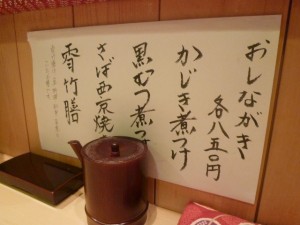 おしながき
各八五〇円
かじき煮つけ
黒むつ煮つけ
さば西京焼
雪竹膳